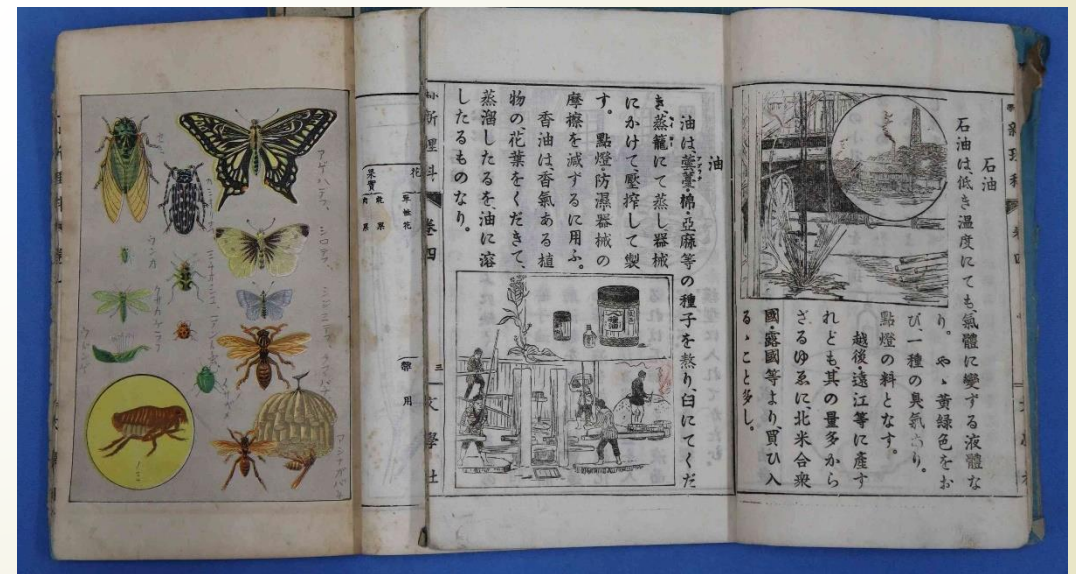 石油
石油は、低き温度にても、氣體に變ずる液體な
り。やゝ黄緑色をお
び、一種の臭氣あり。
點燈の料となす。
越後・遠江等に産す
れども、其の量多から
ざるゆゑに、北米合衆
國・露國等より、買ひ入
るゝこと多し。
油
油は、蕓薹・棉・亞麻等の種子を熬り、臼にてくだ
き、蒸籠にて蒸し、器械
にかけて、壓搾して製
す。點燈・防濕・器械の
摩擦を減ずるに用ふ。
香油は、香氣ある植
物の花葉をくだきて、
蒸溜したるを、油に溶
したるものなり。
新理科
卷四
三
文學社
花
果實
應用
アゲハテフ
シロテフ
セミ
ウンカ
ノミ